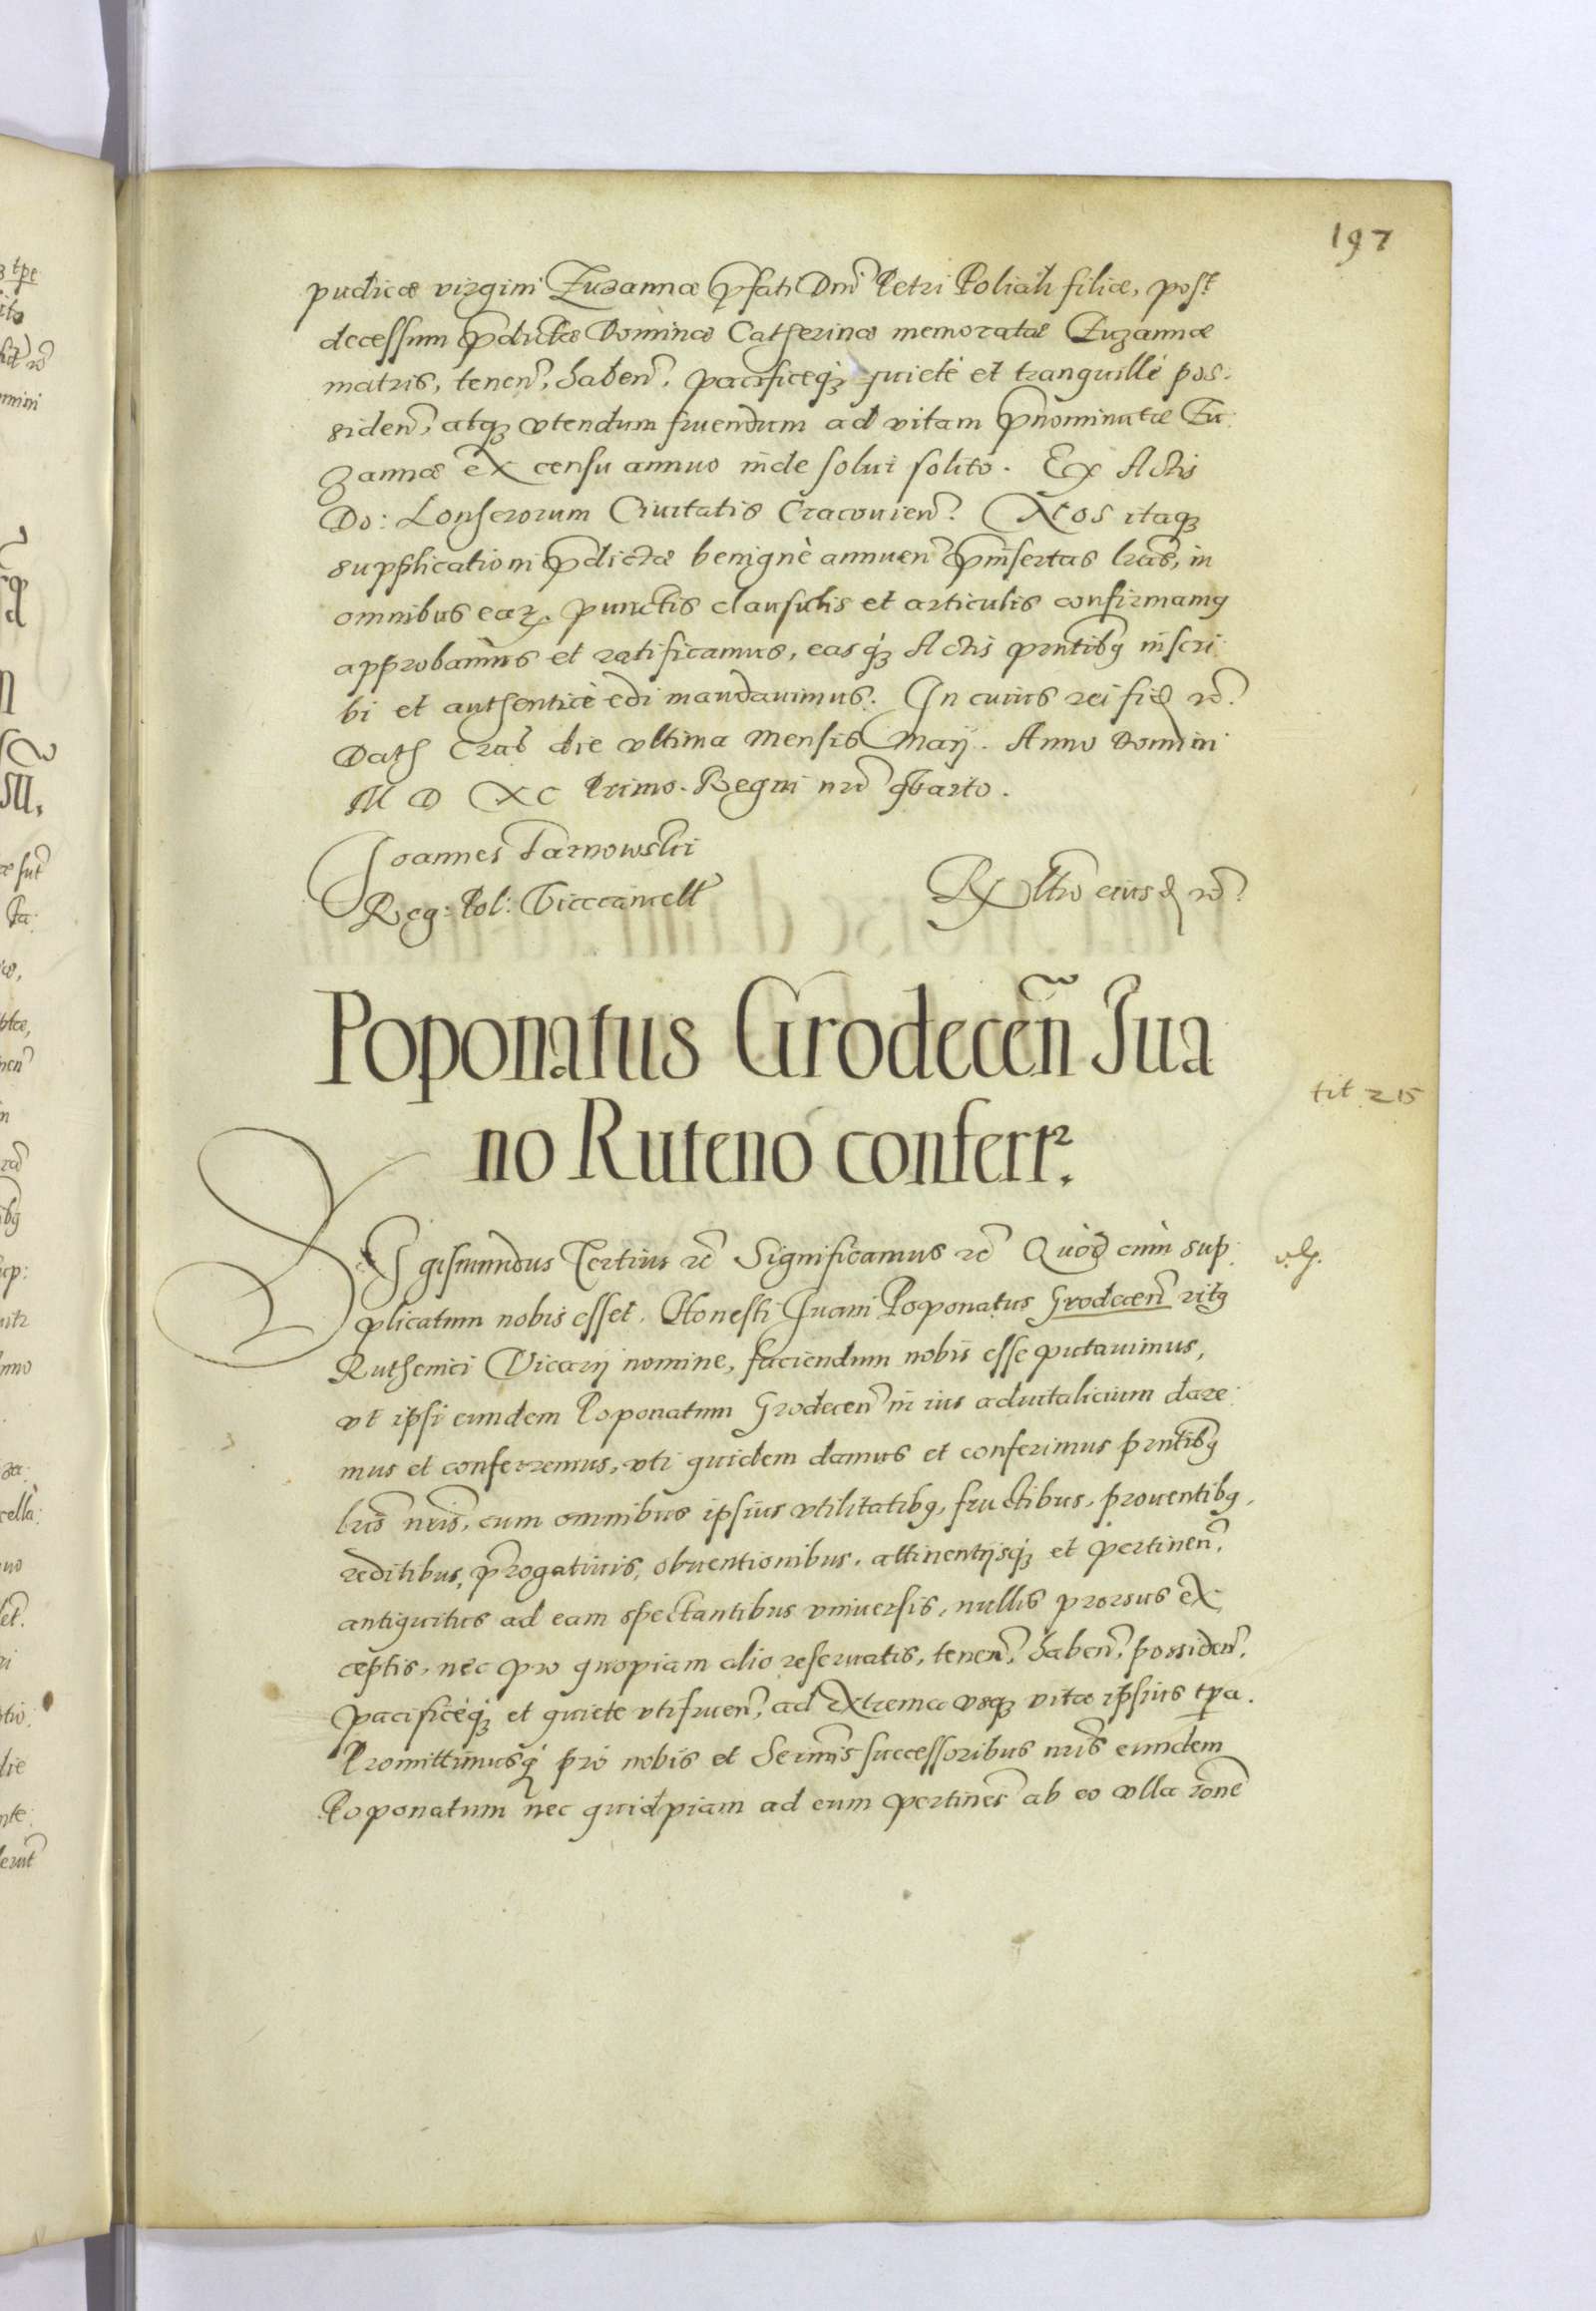 197
pudicæ virgini Zuzannæ p̱fati Dni Petri Poliali filiæ, post
decessum p̱dictæ Dominæ Catherinæ memoratæ Zuzannæ
matris, tenen̄, haben̄, pacificeq̱ȝ quietè et tranquillè pos:
siden̄, atqȝ vtendum fruendum ad vitam p̱nominatæ Zu:
zannæ ex censu annuo inde solui solito. Ex Actis
Do: Consulum Ciuitatis Cracouien̄. Nos itaqȝ
supplicationi p̱dictæ benignè annuen̄ p̱insertas lrãs, in
omnibus eaꝝ punctis clausulis et articulis confirmamꝰ
approbamus et ratificamus, easqȝ Actis pñtibꝰ inscri:
bi et authenticè edi mandauimus. In cuius rei fid̄ rc̄.
Dat Crac̄ die vltima mensis Maij. Anno Domini
M D XC Primo. Regni nrĩ qũarto.
Joannes Tarnowski
Reg: Pol: Vicecancell̄
Rx ltio eiusd̄ rc̄.
Poponatus Grodecen̄ Jua
no Ruteno conferrꝛ.
tit 215
Sigismundus Tertius rc̄ Significamus rc̄ Quòd cum sup:
plicatum nobis esset, Honesti Juani Poponatus Grodecen̄ ritꝰ
Ruthenici Vicarij nomine, faciendum nobis esse putauimus,
vt ipsi eundem Poponatum Grodecen̄ in ius aduitalicium dare:
mus et conferremus, vti quidem damus et conferimus pñtibꝰ
lrĩs nrĩs, cum omnibus ipsius vtilitatibꝰ, fructibus, prouentibꝰ,
reditibus, p̱rogatiuis, obuentionibus, attinentijsqȝ et pertinen̄,
antiquitus ad eam spectantibus vniuersis, nullis prorsus ex:
ceptis, nec pro quopiam alio reseruatis, tenen̄, haben̄, possiden̄,
pacificeqȝ et quiete vtifruen̄, ad extrema vsqȝ vitæ ipsius tp̱a.
Promittimusqȝ pro nobis et Serm̃is successoribus nrĩs eundem
Poponatum nec quidpiam ad eum pertinens ab eo vlla rõne